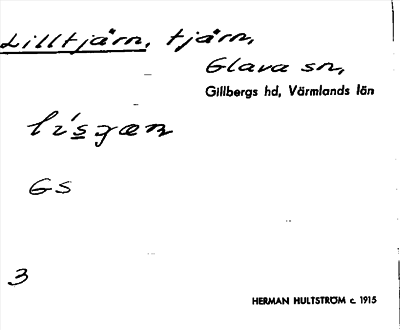 Lilltjärn, tjärn,
Glava sn,
Gillbergs hd, Värmlands län
GS
3
HERMAN HULTSTRÖM c. 1915